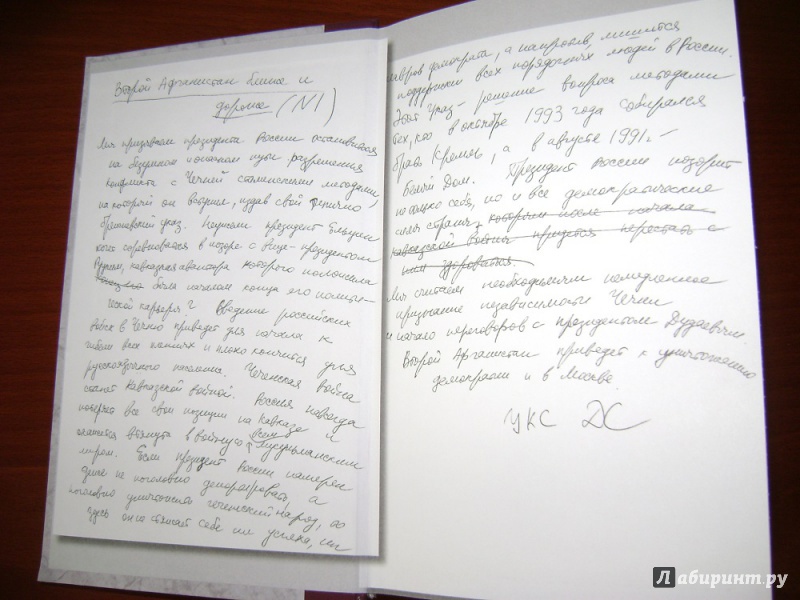 Второй Афганистан ближе и
дороже (N1)
Мы призываем президента России остановиться
на безумном и опасном пути разрешения
конфликта с Чечней сталинскими методами,
на который он вступил, издав свой типично
брежневский указ. Неужели президент Ельцин
хочет соревноваться в позоре с вице-президентом
Руцким, кавказская авантюра которого положила
была началом конца его полити-
ческой карьеры? Введение российских
войск в Чечню приведет для начала к
гибели всех пленных и плохо кончится для
русскоязычного населения. Чеченская война
станет Кавказской войной. Россия навсегда
потеряет все свои позиции на Кавказе и
окажется втянута в войну со всем мусульманским
миром. Если президент России намерен
даже не поголовно депортировать, а
поголовно уничтожить чеченский народ, то
здесь он не стяжает себе ни успеха, ни
лавров демократа, а напротив, лишится
поддержки всех порядочных людей в России.
Этот Указ - решение вопроса методами
тех, кто в октябре 1993 года собирался
брать Кремль, а в августе 1991г. -
Белый Дом. Президент России позорит
не только себя, но и все демократические
силы страны, которым после начала
кавказской войны придется перестать с
ним здороваться
Мы считаем необходимым немедленное
признание независимости Чечни
и начало переговоров с президентом Дудаевым.
Второй Афганистан приведет к уничтожению
демократии и в Москве.
УКС ДС
Лабиринт.ру